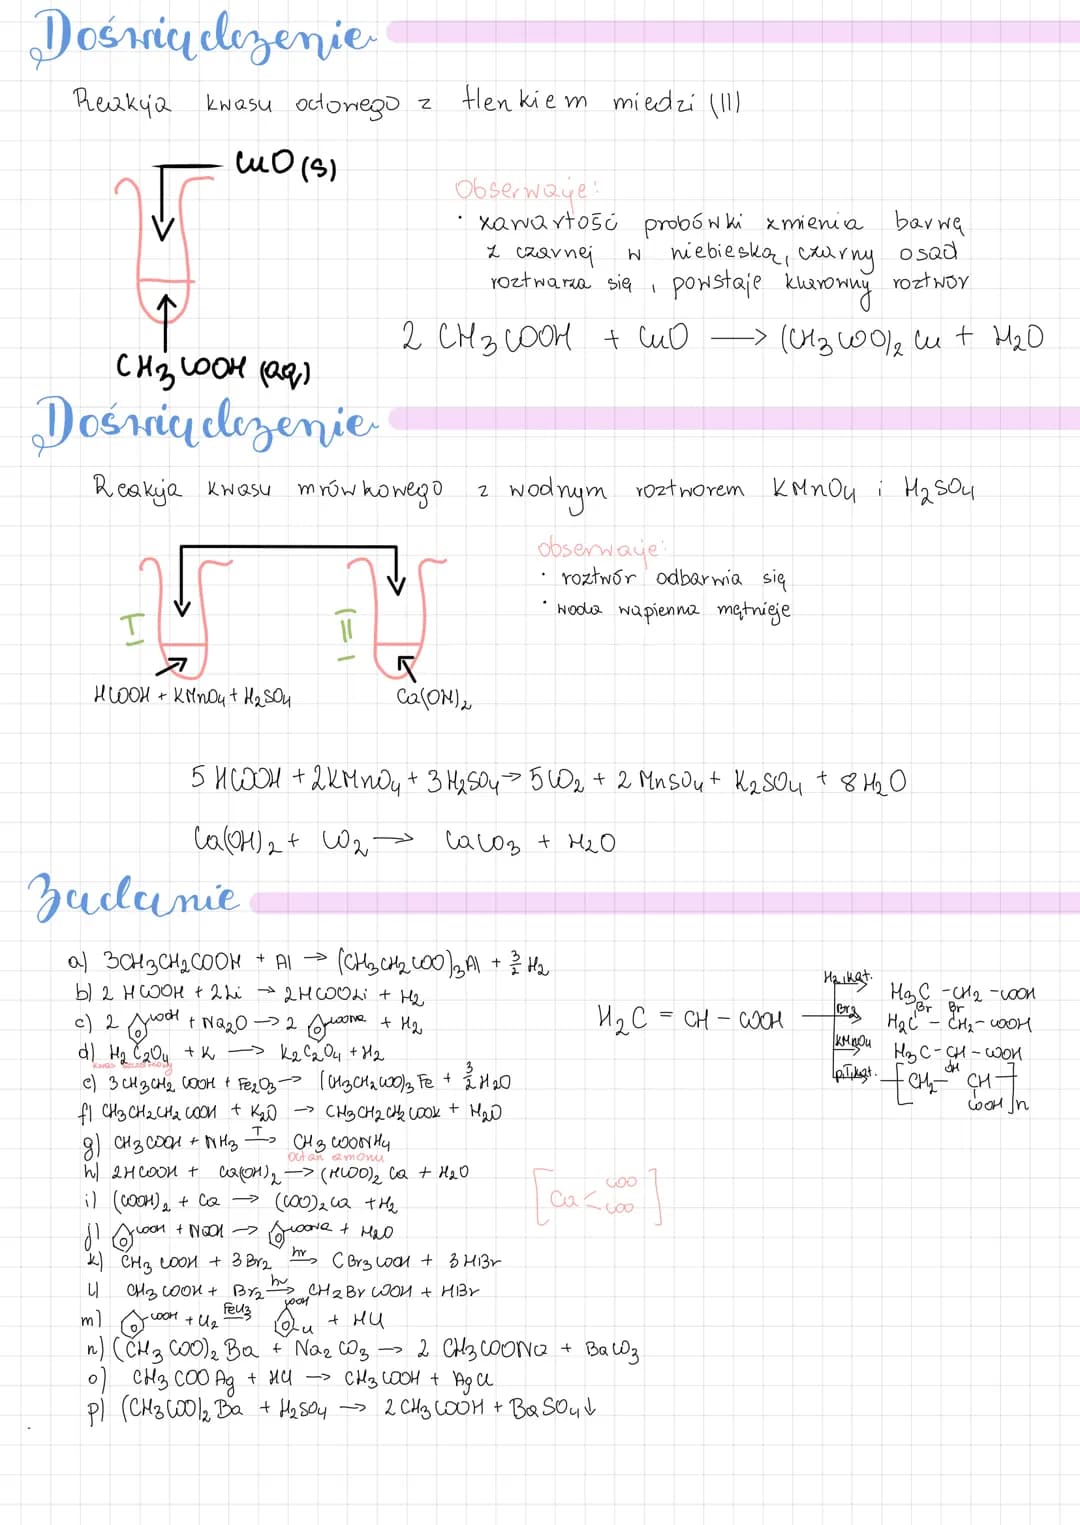 Doświadczenie
Reakcja kwasu octowego z tlenkiem miedzi (II)
CuO(s)
CH3COOH (aq)
Obserwacje:
· zawartość probówki zmienia barwę
z czarnej w niebieską, czarny osad
roztwarza się, powstaje klarowny roztwór
2 CH3COOH + CuO → (CH3COO)2 Cu + H2O
Doświadczenie
Reakcja kwasu mrówkowego z wodnym roztworem KMnO4 i H2SO4
I
II
HCOOH + KMnO4 + H2SO4
Ca(OH)2
obserwacje:
· roztwór odbarwia się
· woda wapienna mętnieje
5 HCOOH + 2KMnO4 + 3H2SO4 → 5CO2 + 2 MnSO4 + K2SO4 + 8H2O
Ca(OH)2 + CO2 → CaCO3 + H2O
Zadanie
a) 3CH3CH2COOH + Al → (CH3CH2COO)3Al + 3/2 H2
b) 2 HCOOH + 2Li → 2HCOOLi + H2
c) 2 COOH + Na2O → 2 COONa + H2
d) H2C2O4 + K → K2C2O4 + H2
kwas szczawiowy
e) 3 CH3CH2COOH + Fe2O3 → (CH3CH2COO)3 Fe + 3/2 H2O
f) CH3CH2CH2COOH + K2O → CH3CH2CH2COOK + H2O
g) CH3COOH + NH3 T→ CH3COONH4
octan amonu
h) 2HCOOH + Ca(OH)2 → (HCOO)2 Ca + H2O
i) (COOH)2 + Ca → (COO)2Ca + H2
[Ca < COO COO]
j) COOH + NaOH → COONa + H2O
k) CH3COOH + 3Br2 hν→ CBr3COOH + 3HBr
l) CH3COOH + Br2 hν→ CH2BrCOOH + HBr
m) COOH + Cl2 FeCl3 COOH Cl + HCl
n) (CH3COO)2Ba + Na2CO3 → 2 CH3COONa + BaCO3
o) CH3COOAg + HCl → CH3COOH + AgCl
p) (CH3COO)2Ba + H2SO4 → 2CH3COOH + BaSO4↓
H2C = CH - COOH
H2, kat. H3C - CH2 - COOH
Br2 H2C Br - CH2 Br - COOH
KMnO4 H3C - CH - COOH OH
p,T,kat. [CH2 - CH COOH]n